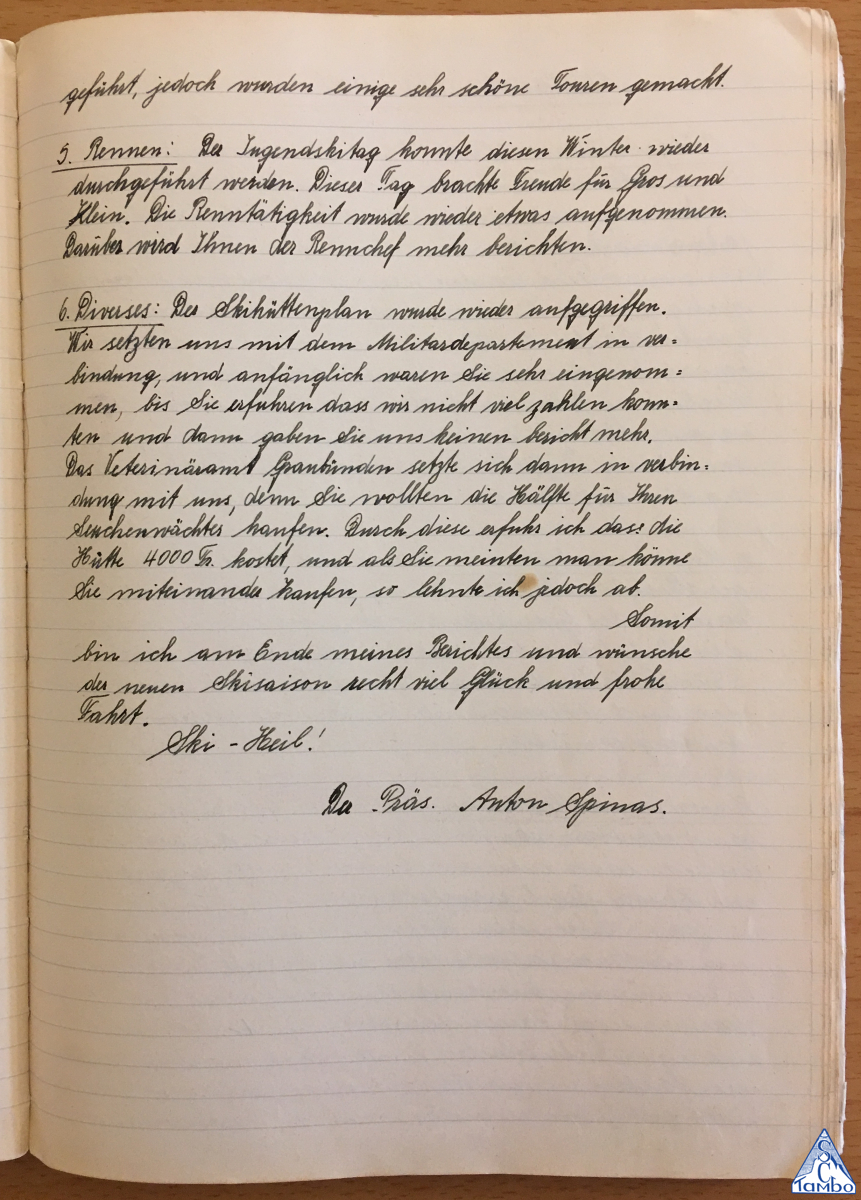 geführt, jedoch wurden einige sehr schöne Touren gemacht.
5. Rennen: Der Jugendskitag konnte diesen Winter wieder
durchgeführt werden. Dieser Tag brachte Freude für Gros und
Klein. Die Renntätigkeit wurde wieder etwas aufgenommen.
Darüber wird Ihnen der Rennchef mehr berichten.
6. Diverses: Der Skihüttenplan wurde wieder aufgegriffen.
Wir setzten uns mit dem Militärdepartement in ver=
bindung, und anfänglich waren Sie sehr eingenom=
men, bis Sie erfuhren dass wir nicht viel zahlen konn=
ten und dann gaben Sie uns keinen bericht mehr.
Das Veterinäramt Graubünden setzte sich dann in verbin=
dung mit uns, denn Sie wollten die Hälfte für Ihren
Seuchenwächter kaufen. Durch diese erfuhr ich dass die
Hütte 4000 Fr. kostet, und als Sie meinten man könne
Sie miteinander kaufen, so lehnte ich jedoch ab.
Somit
bin ich am Ende meines Berichtes und wünsche
der neuen Skisaison recht viel Glück und frohe
Fahrt.
Ski - Heil!
Der Präs. Anton Spinas.
SC
Tambo